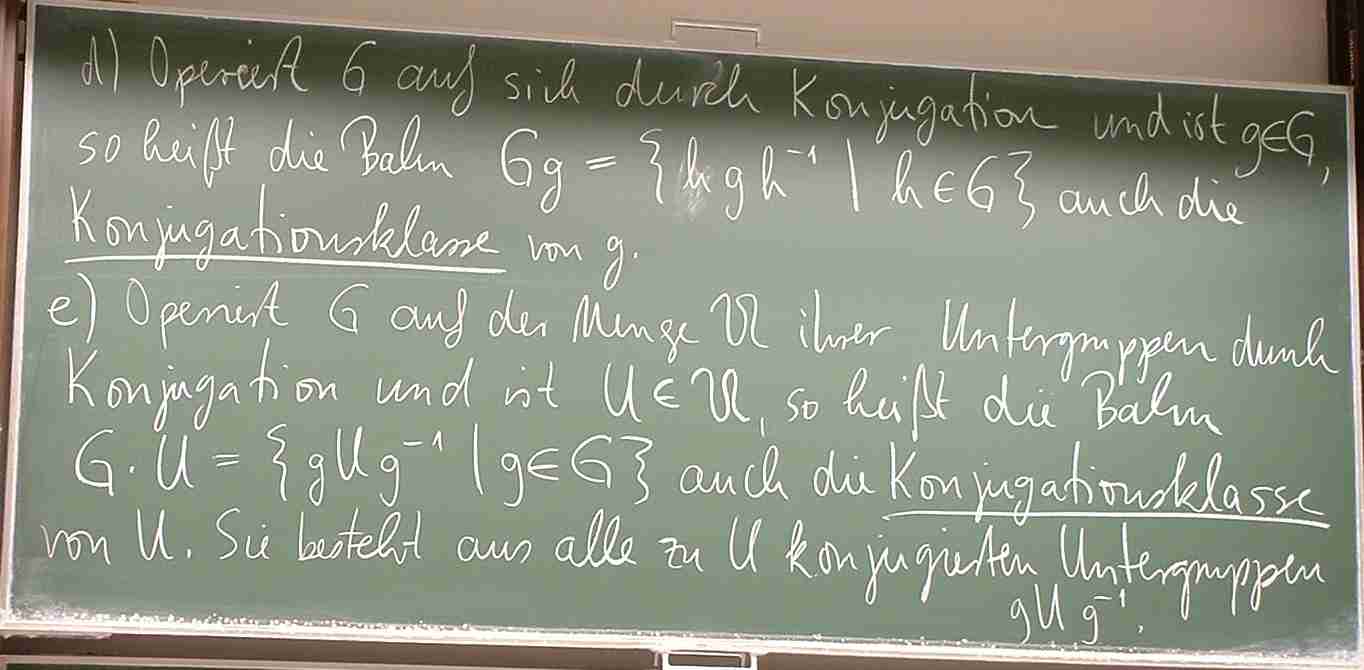 d) Operiert G auf sich durch Konjugation und ist g∈G,
so heißt die Bahn Gg = {hgh⁻¹ | h∈G} auch die
Konjugationsklasse von g.
e) Operiert G auf der Menge 𝔘 ihrer Untergruppen durch
Konjugation und ist U∈𝔘, so heißt die Bahn
G·U = {gUg⁻¹ | g∈G} auch die Konjugationsklasse
von U. Sie besteht aus alle zu U konjugierten Untergruppen
gUg⁻¹.